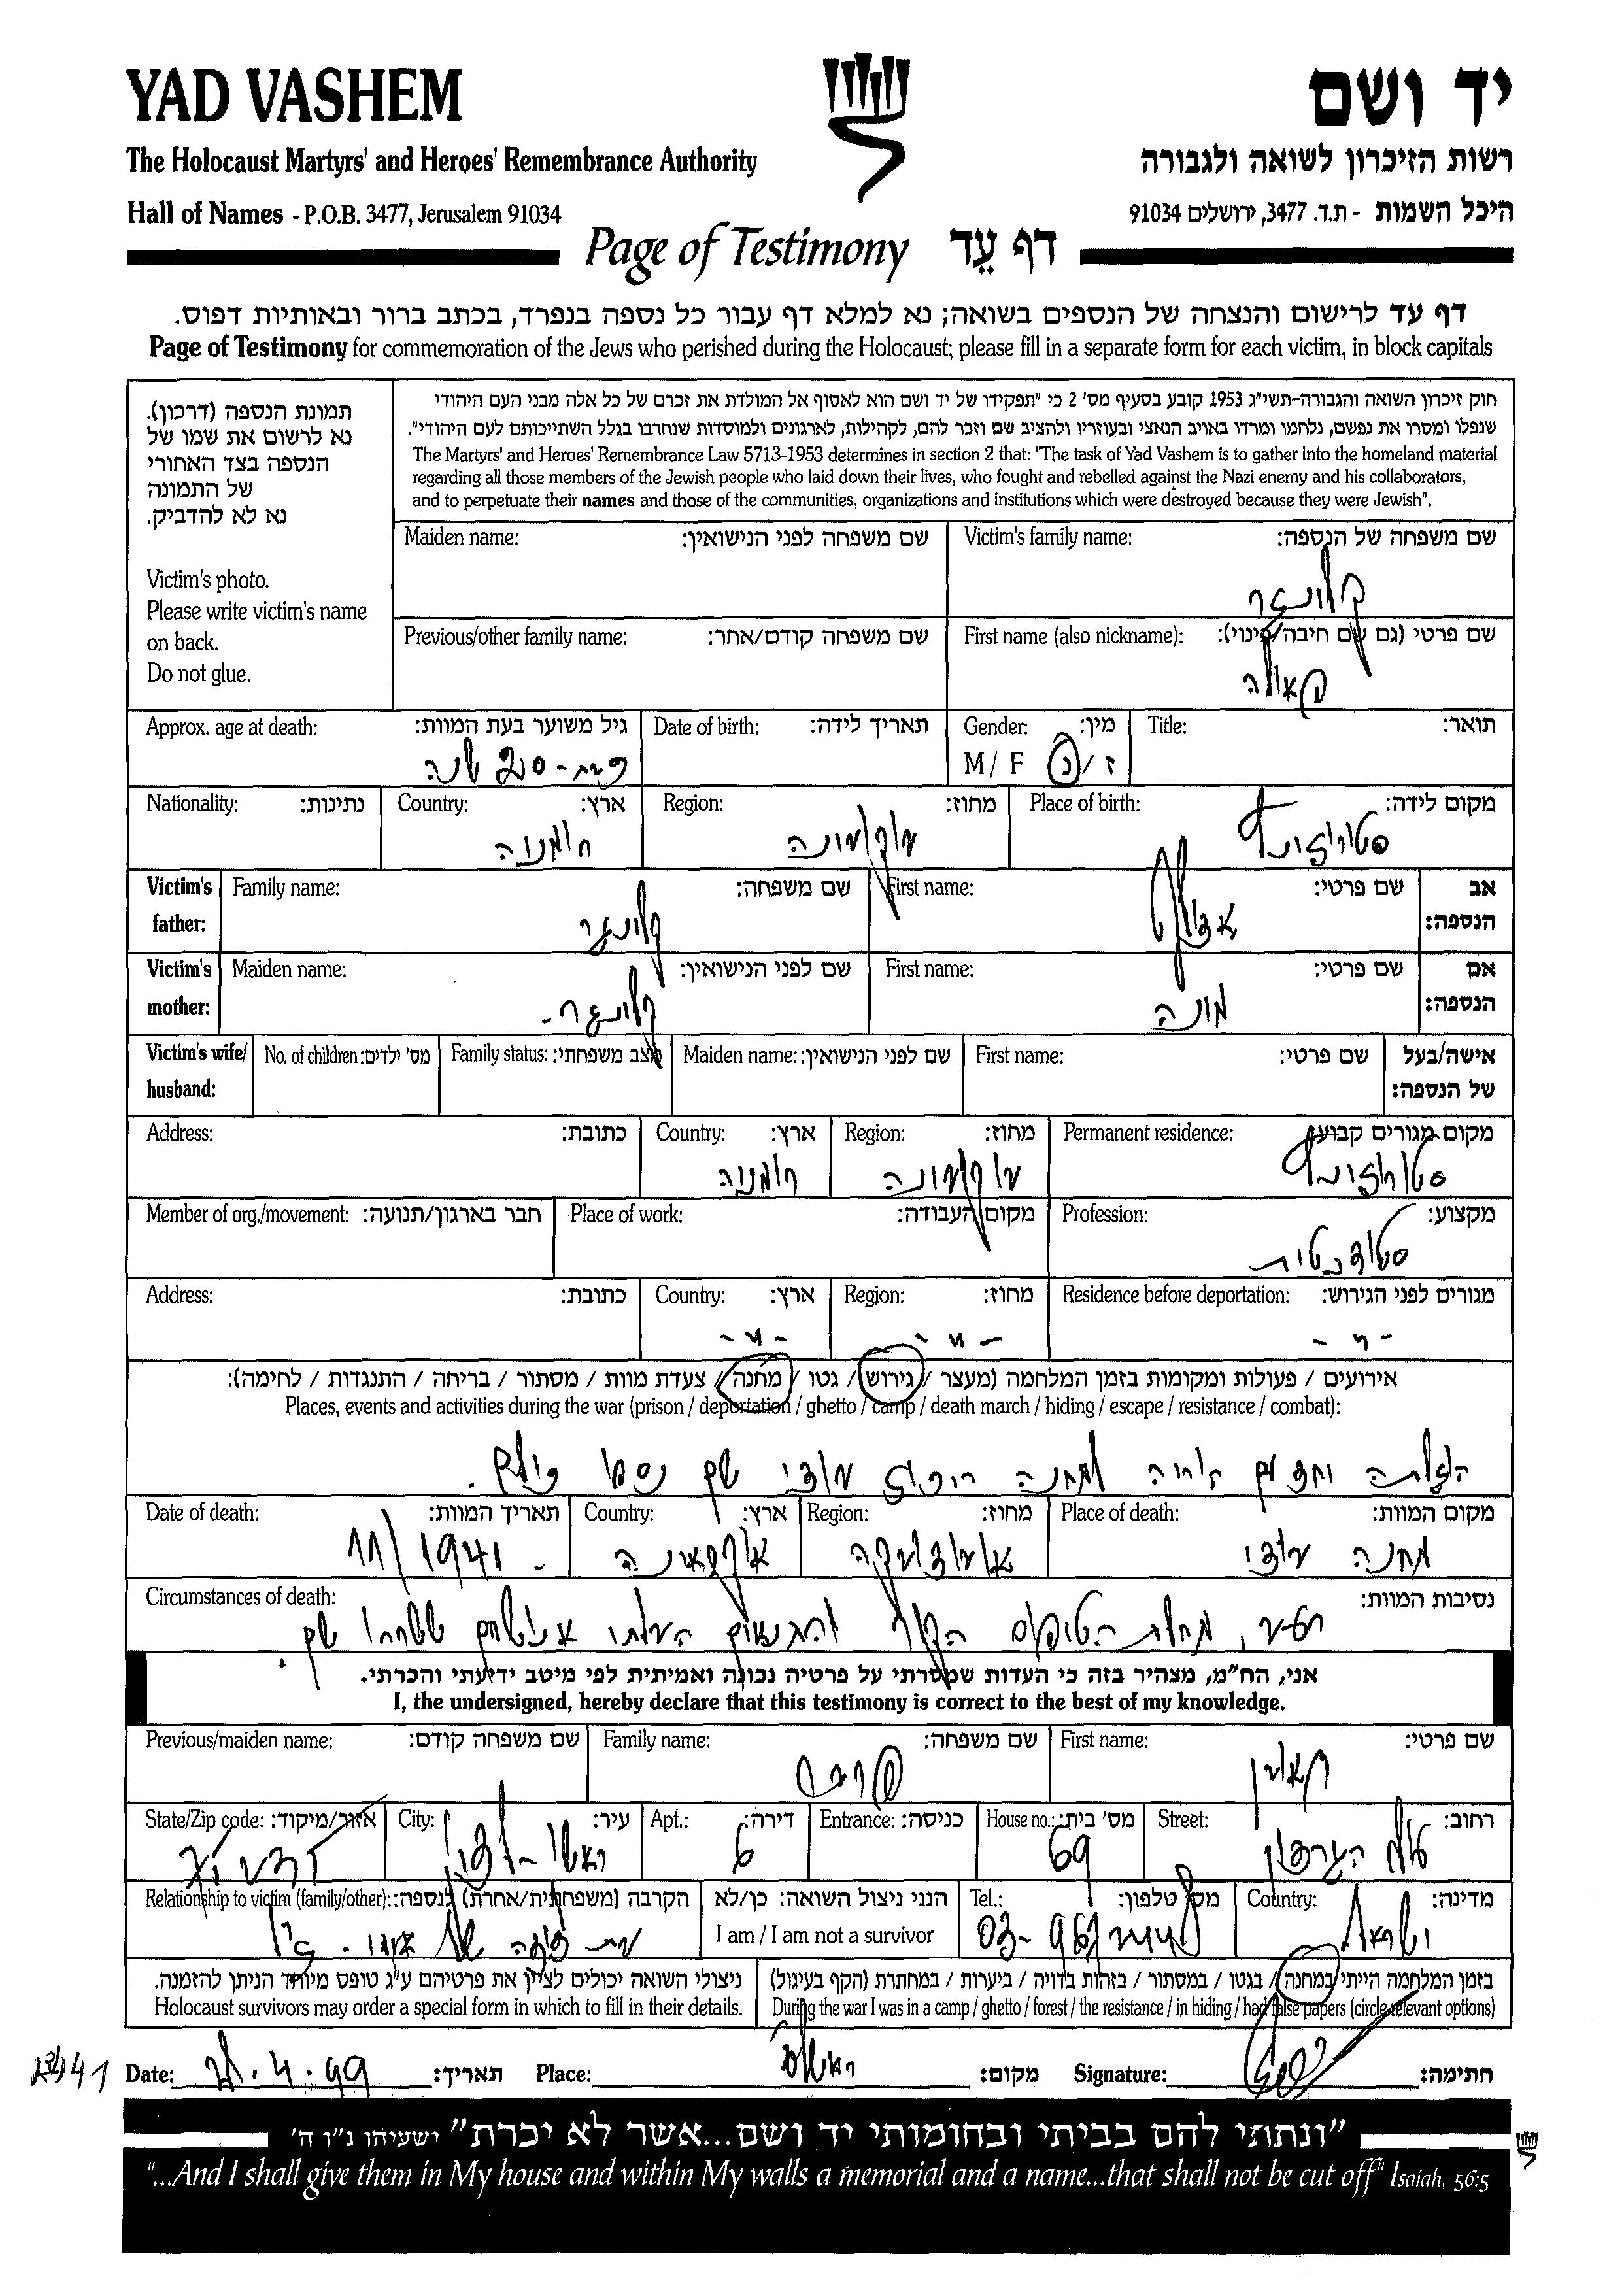 YAD VASHEM
יד ושם
The Holocaust Martyrs' and Heroes' Remembrance Authority
רשות הזיכרון לשואה ולגבורה
Hall of Names - P.O.B. 3477, Jerusalem 91034
היכל השמות - ת.ד. 3477, ירושלים 91034
Page of Testimony דף עֵד
דף עד לרישום והנצחה של הנספים בשואה; נא למלא דף עבור כל נספה בנפרד, בכתב ברור ובאותיות דפוס.
Page of Testimony for commemoration of the Jews who perished during the Holocaust; please fill in a separate form for each victim, in block capitals
תמונת הנספה (דרכון).
נא לרשום את שמו של
הנספה בצד האחורי
של התמונה
נא לא להדביק.
Victim's photo.
Please write victim's name
on back.
Do not glue.
חוק זיכרון השואה והגבורה-תשי"ג 1953 קובע בסעיף מס' 2 כי "תפקידו של יד ושם הוא לאסוף אל המולדת את זכרם של כל אלה מבני העם היהודי
שנפלו ומסרו את נפשם, נלחמו ומרדו באויב הנאצי ובעוזריו ולהציב שם וזכר להם, לקהילות, לארגונים ולמוסדות שנחרבו בגלל השתייכותם לעם היהודי".
The Martyrs' and Heroes' Remembrance Law 5713-1953 determines in section 2 that: "The task of Yad Vashem is to gather into the homeland material
regarding all those members of the Jewish people who laid down their lives, who fought and rebelled against the Nazi enemy and his collaborators,
and to perpetuate their names and those of the communities, organizations and institutions which were destroyed because they were Jewish".
Victim's family name: שם משפחה של הנספה:
קלינגר
Maiden name: שם משפחה לפני הנישואין:
First name (also nickname): שם פרטי (גם שם חיבה/כינוי):
פאולה
Previous/other family name: שם משפחה קודם/אחר:
Title: תואר:
Gender: מין:
M / F ז / נ
Date of birth: תאריך לידה:
Approx. age at death: גיל משוער בעת המוות:
20 שנה
Place of birth: מקום לידה:
סטורוז'ינץ
Region: מחוז:
Country: ארץ:
רומניה
Nationality: נתינות:
אב
הנספה:
First name: שם פרטי:
אדולף
Family name: שם משפחה:
קלינגר
Victim's
father:
אם
הנספה:
First name: שם פרטי:
מינה
Maiden name: שם לפני הנישואין:
קלינגר -
Victim's
mother:
אישה/בעל
של הנספה:
First name: שם פרטי:
Maiden name: שם לפני הנישואין:
Family status: מצב משפחתי:
No. of children: מס' ילדים:
Victim's wife/
husband:
Permanent residence: מקום מגורים קבוע:
סטורוז'ינץ
Region: מחוז:
Country: ארץ:
רומניה
Address: כתובת:
Profession: מקצוע:
סטודנטית
Place of work: מקום העבודה:
Member of org./movement: חבר בארגון/תנועה:
Residence before deportation: מגורים לפני הגירוש:
- " -
Region: מחוז:
- " -
Country: ארץ:
- " -
Address: כתובת:
אירועים / פעולות ומקומות בזמן המלחמה (מעצר / גירוש / גטו / מחנה / צעדת מוות / מסתור / בריחה / התנגדות / לחימה):
Places, events and activities during the war (prison / deportation / ghetto / camp / death march / hiding / escape / resistance / combat):
למחנה שם נספו כולם.
Place of death: מקום המוות:
מחנה
Region: מחוז:
Country: ארץ:
אוקראינה
Date of death: תאריך המוות:
11/1941 -
Circumstances of death: נסיבות המוות:
רעב, מחלת הטיפוס הקור והתנאים הבלתי אנושיים ששררו שם.
אני, הח"מ, מצהיר בזה כי העדות שמסרתי על פרטיה נכונה ואמיתית לפי מיטב ידיעתי והכרתי.
I, the undersigned, hereby declare that this testimony is correct to the best of my knowledge.
First name: שם פרטי:
Family name: שם משפחה:
Previous/maiden name: שם משפחה קודם:
Street: רחוב:
House no.: מס' בית:
69
Entrance: כניסה:
Apt.: דירה:
6
City: עיר:
ראשון-לציון
State/Zip code: אזור/מיקוד:
Country: מדינה:
ישראל
Tel.: מס' טלפון:
I am / I am not a survivor הנני ניצול השואה: כן/לא
Relationship to victim (family/other): הקרבה (משפחתית/אחרת) לנספה:
בת דודה של
בזמן המלחמה הייתי במחנה / בגטו / במסתור / בזהות בדויה / ביערות / במחתרת (הקף בעיגול)
During the war I was in a camp / ghetto / forest / the resistance / in hiding / had false papers (circle relevant options)
ניצולי השואה יכולים לציין את פרטיהם ע"ג טופס מיוחד הניתן להזמנה.
Holocaust survivors may order a special form in which to fill in their details.
Date: תאריך: Place: מקום: Signature: חתימה:
"ונתתי להם בביתי ובחומותי יד ושם...אשר לא יכרת" ישעיהו נ"ו ה'
"...And I shall give them in My house and within My walls a memorial and a name...that shall not be cut off" Isaiah, 56:5